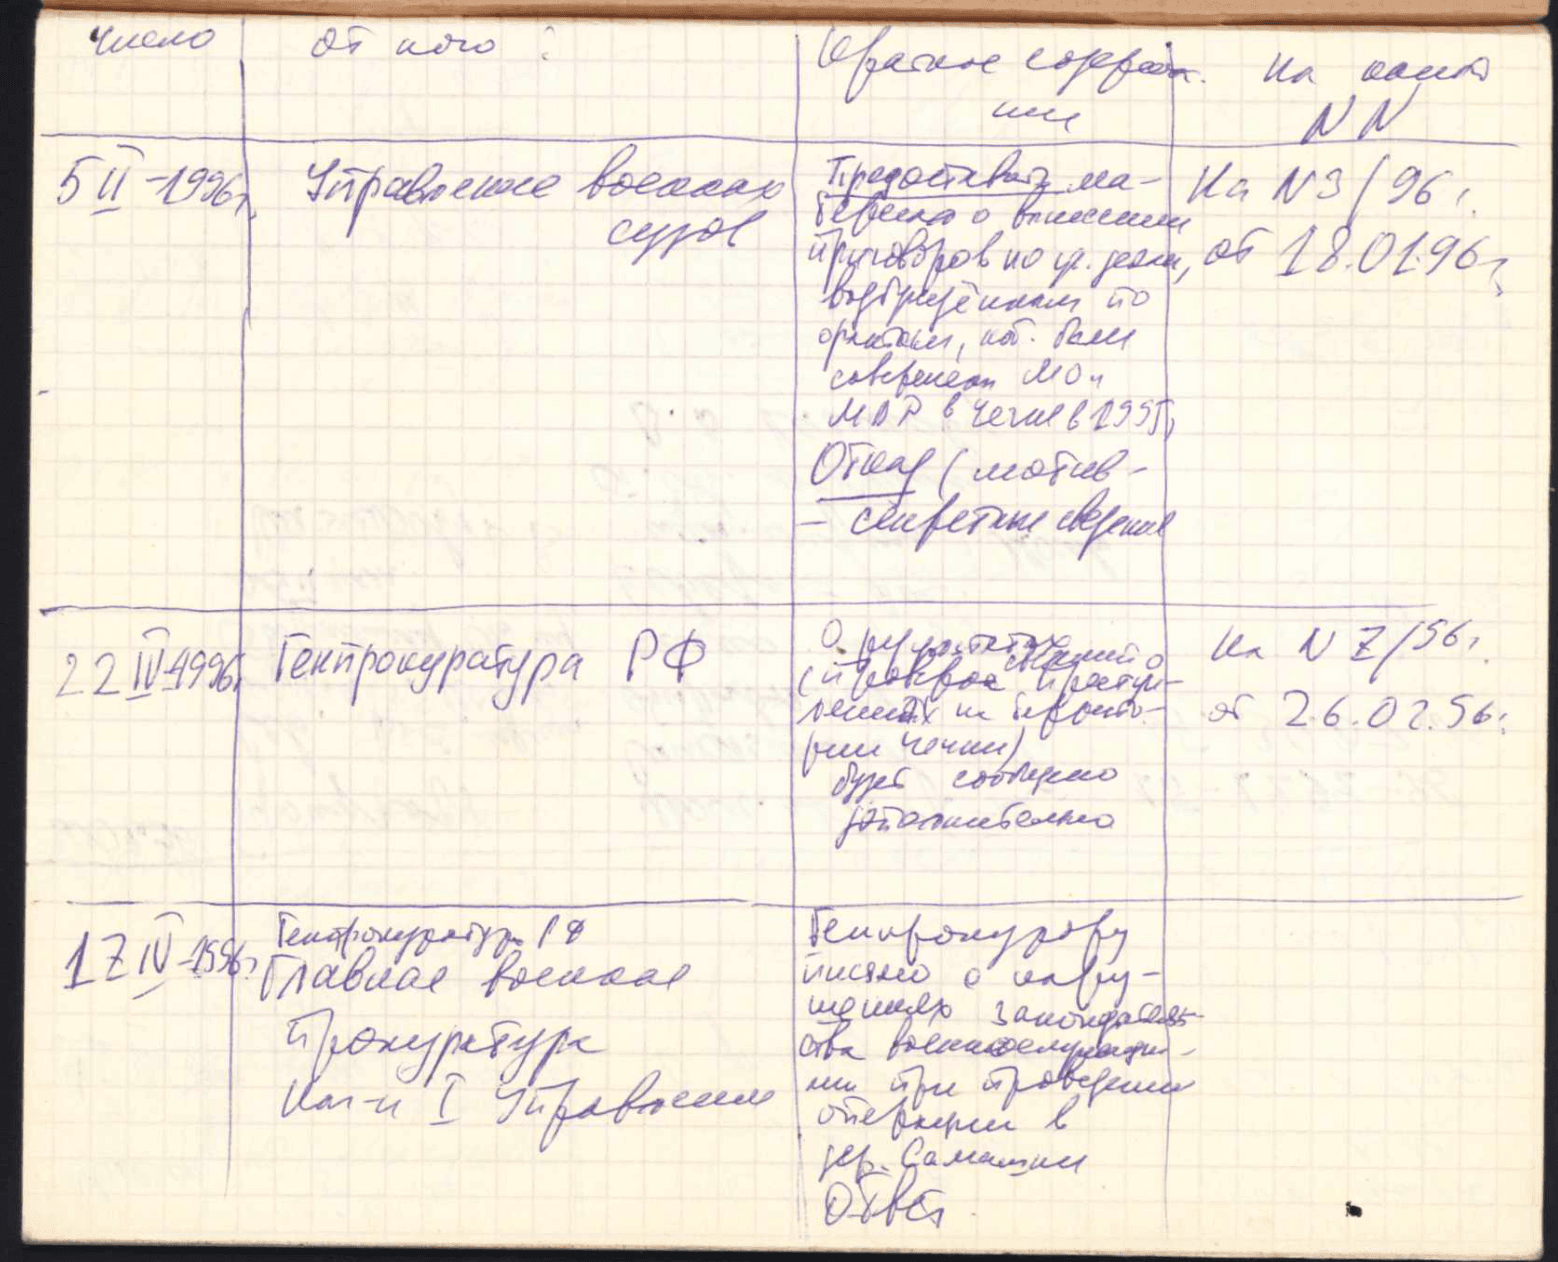 число
от кого :
Краткое содержа-
ние
На наши
NN
5 II-1996г.
Управление военных
судов
Предоставить ма-
териал о вынесении
приговоров по уг. делам,
возбуждённым по
фактам, кот. были
совершены МО и
МВД в Чечне в 1995г.
Отказ (мотив -
- секретные сведения
На N 3/96 г.
от 18.01.96г.
22 IV-1996г.
Генпрокуратура РФ
О результатах
(проверок преступ-
лениях на террито-
рии Чечни)
будет сообщено
дополнительно
На N 7/96г.
от 26.02.96г.
17 IV-1996г.
Генпрокуратура РФ
Главная военная
прокуратура
Нач-к I Управления
Генпрокурору
письмо о нару-
шениях законодатель-
ства военнослужащи-
ми при проведении
операции в
дер. Самашки
Ответ